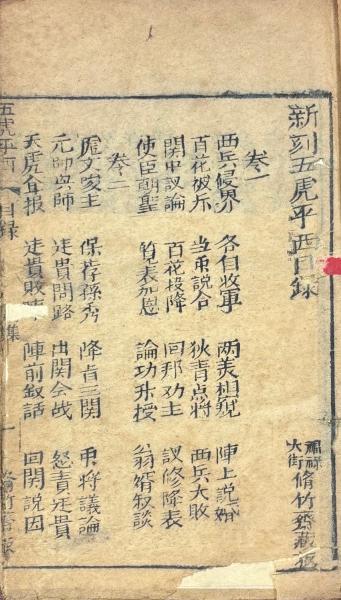 新刻五虎平西目錄
福祿大街脩竹齋藏板
卷一
西兵侵界 各自收軍 兩美相銳 陣上說婚
百花被亦 當面說合 狄青点將 西兵大敗
関中議論 百花投降 回邦劝主 議修降表
使臣朝聖 覧表加恩 論功升授 翁婿叙談
卷二
家主 保荐孫秀 降旨三関 甲將議論
元帅與师 走貴問路 出関会战 怒责走貴
天虎 报 走貴败 陣前叙話 回関說因
五虎平西 目錄 集 一 脩竹齋